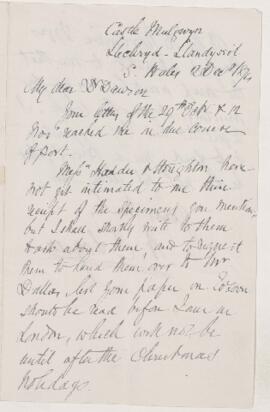 Castle Malgwyn
Llechryd - Llandyssil
S. Wales 2 Decr 1870
My dear Dr Dawson
Your letters of the 29th Octr & 12
Novr reached me in due course
of post.
Messrs Haddon & Houghton have
not yet intimated to me their
receipt of the specimens you mention
but I shall shortly write to them
to ask about them, and to suggest
them to hand them over to Mr
Dallas, lest your paper on
should be read before I am in
London, which will not be
until after the Christmas
Holidays.